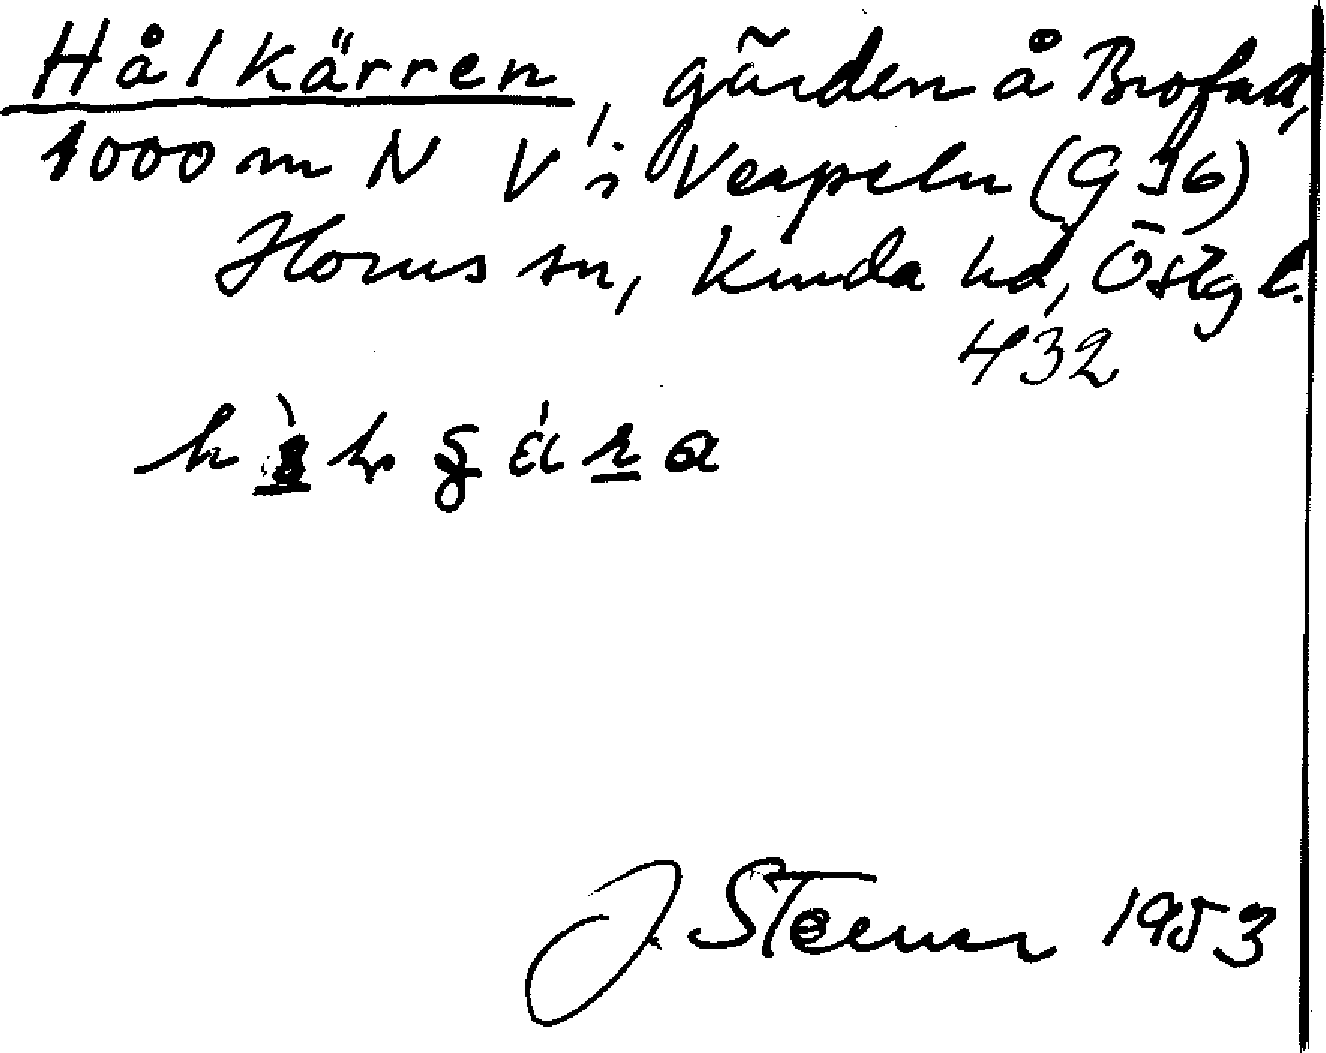 Hålkärren, gärden å Brofall,
1000 m N V i Verpeln (G 36)
Horns sn, Kinda hd, Östgl.
432
J Steener 1953